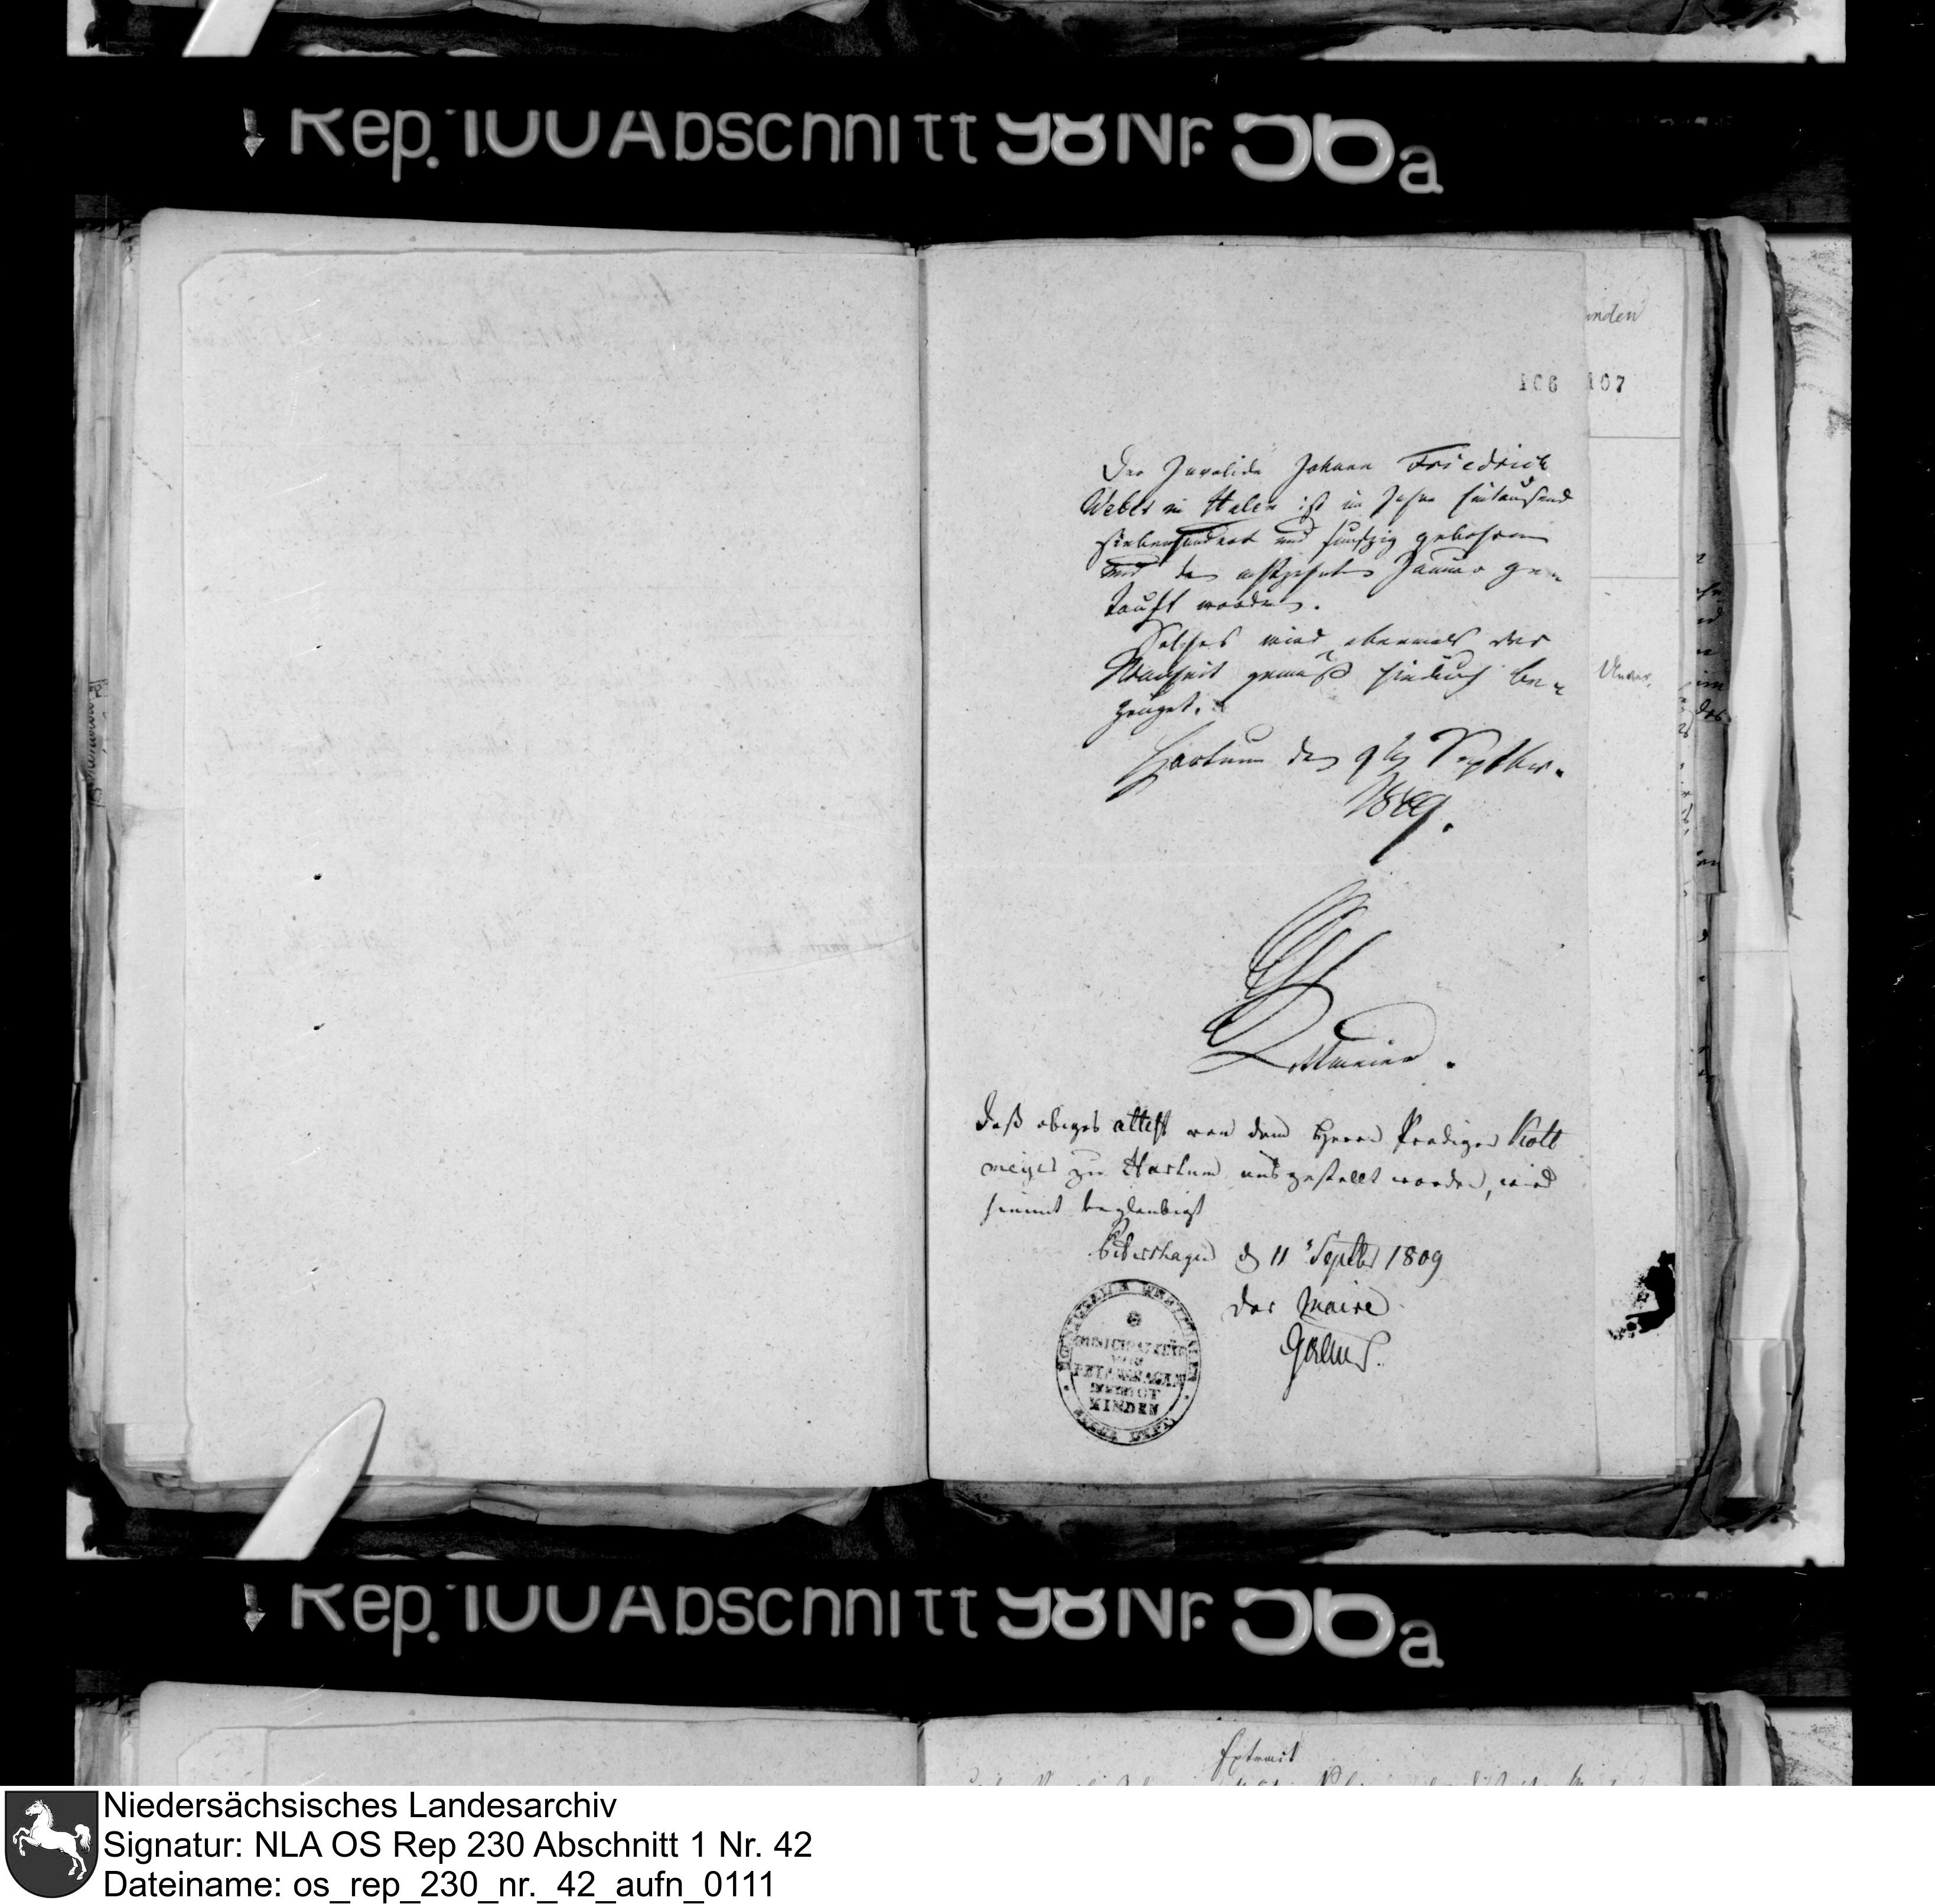 Rep. 100 Abschnitt 98 Nr. 56a
106 107
Der Invalide Johann Friedrich
Weber in Halen ist im Jahre Eintausend
siebenhundert und funfzig gebohren
und den achtzehnten Januar ge-
tauft worden.
Solches wird abermals der
Wahrheit gemäß hiedurch be-
zeuget.
Hartum den 9ten Septbr.
1809.
Daß obiges attest von dem Herrn Prediger Kott
meyer zu Hartum ausgestellt worden, wird
hiemit beglaubigt
Petershagen d 11 Septbr 1809
Der Maire
MUNICIPALITÄT
VON
PETERSHAGEN
DISTRICT
MINDEN
Rep. 100 Abschnitt 98 Nr. 56a
Extract
Niedersächsisches Landesarchiv
Signatur: NLA OS Rep 230 Abschnitt 1 Nr. 42
Dateiname: os_rep_230_nr._42_aufn_0111